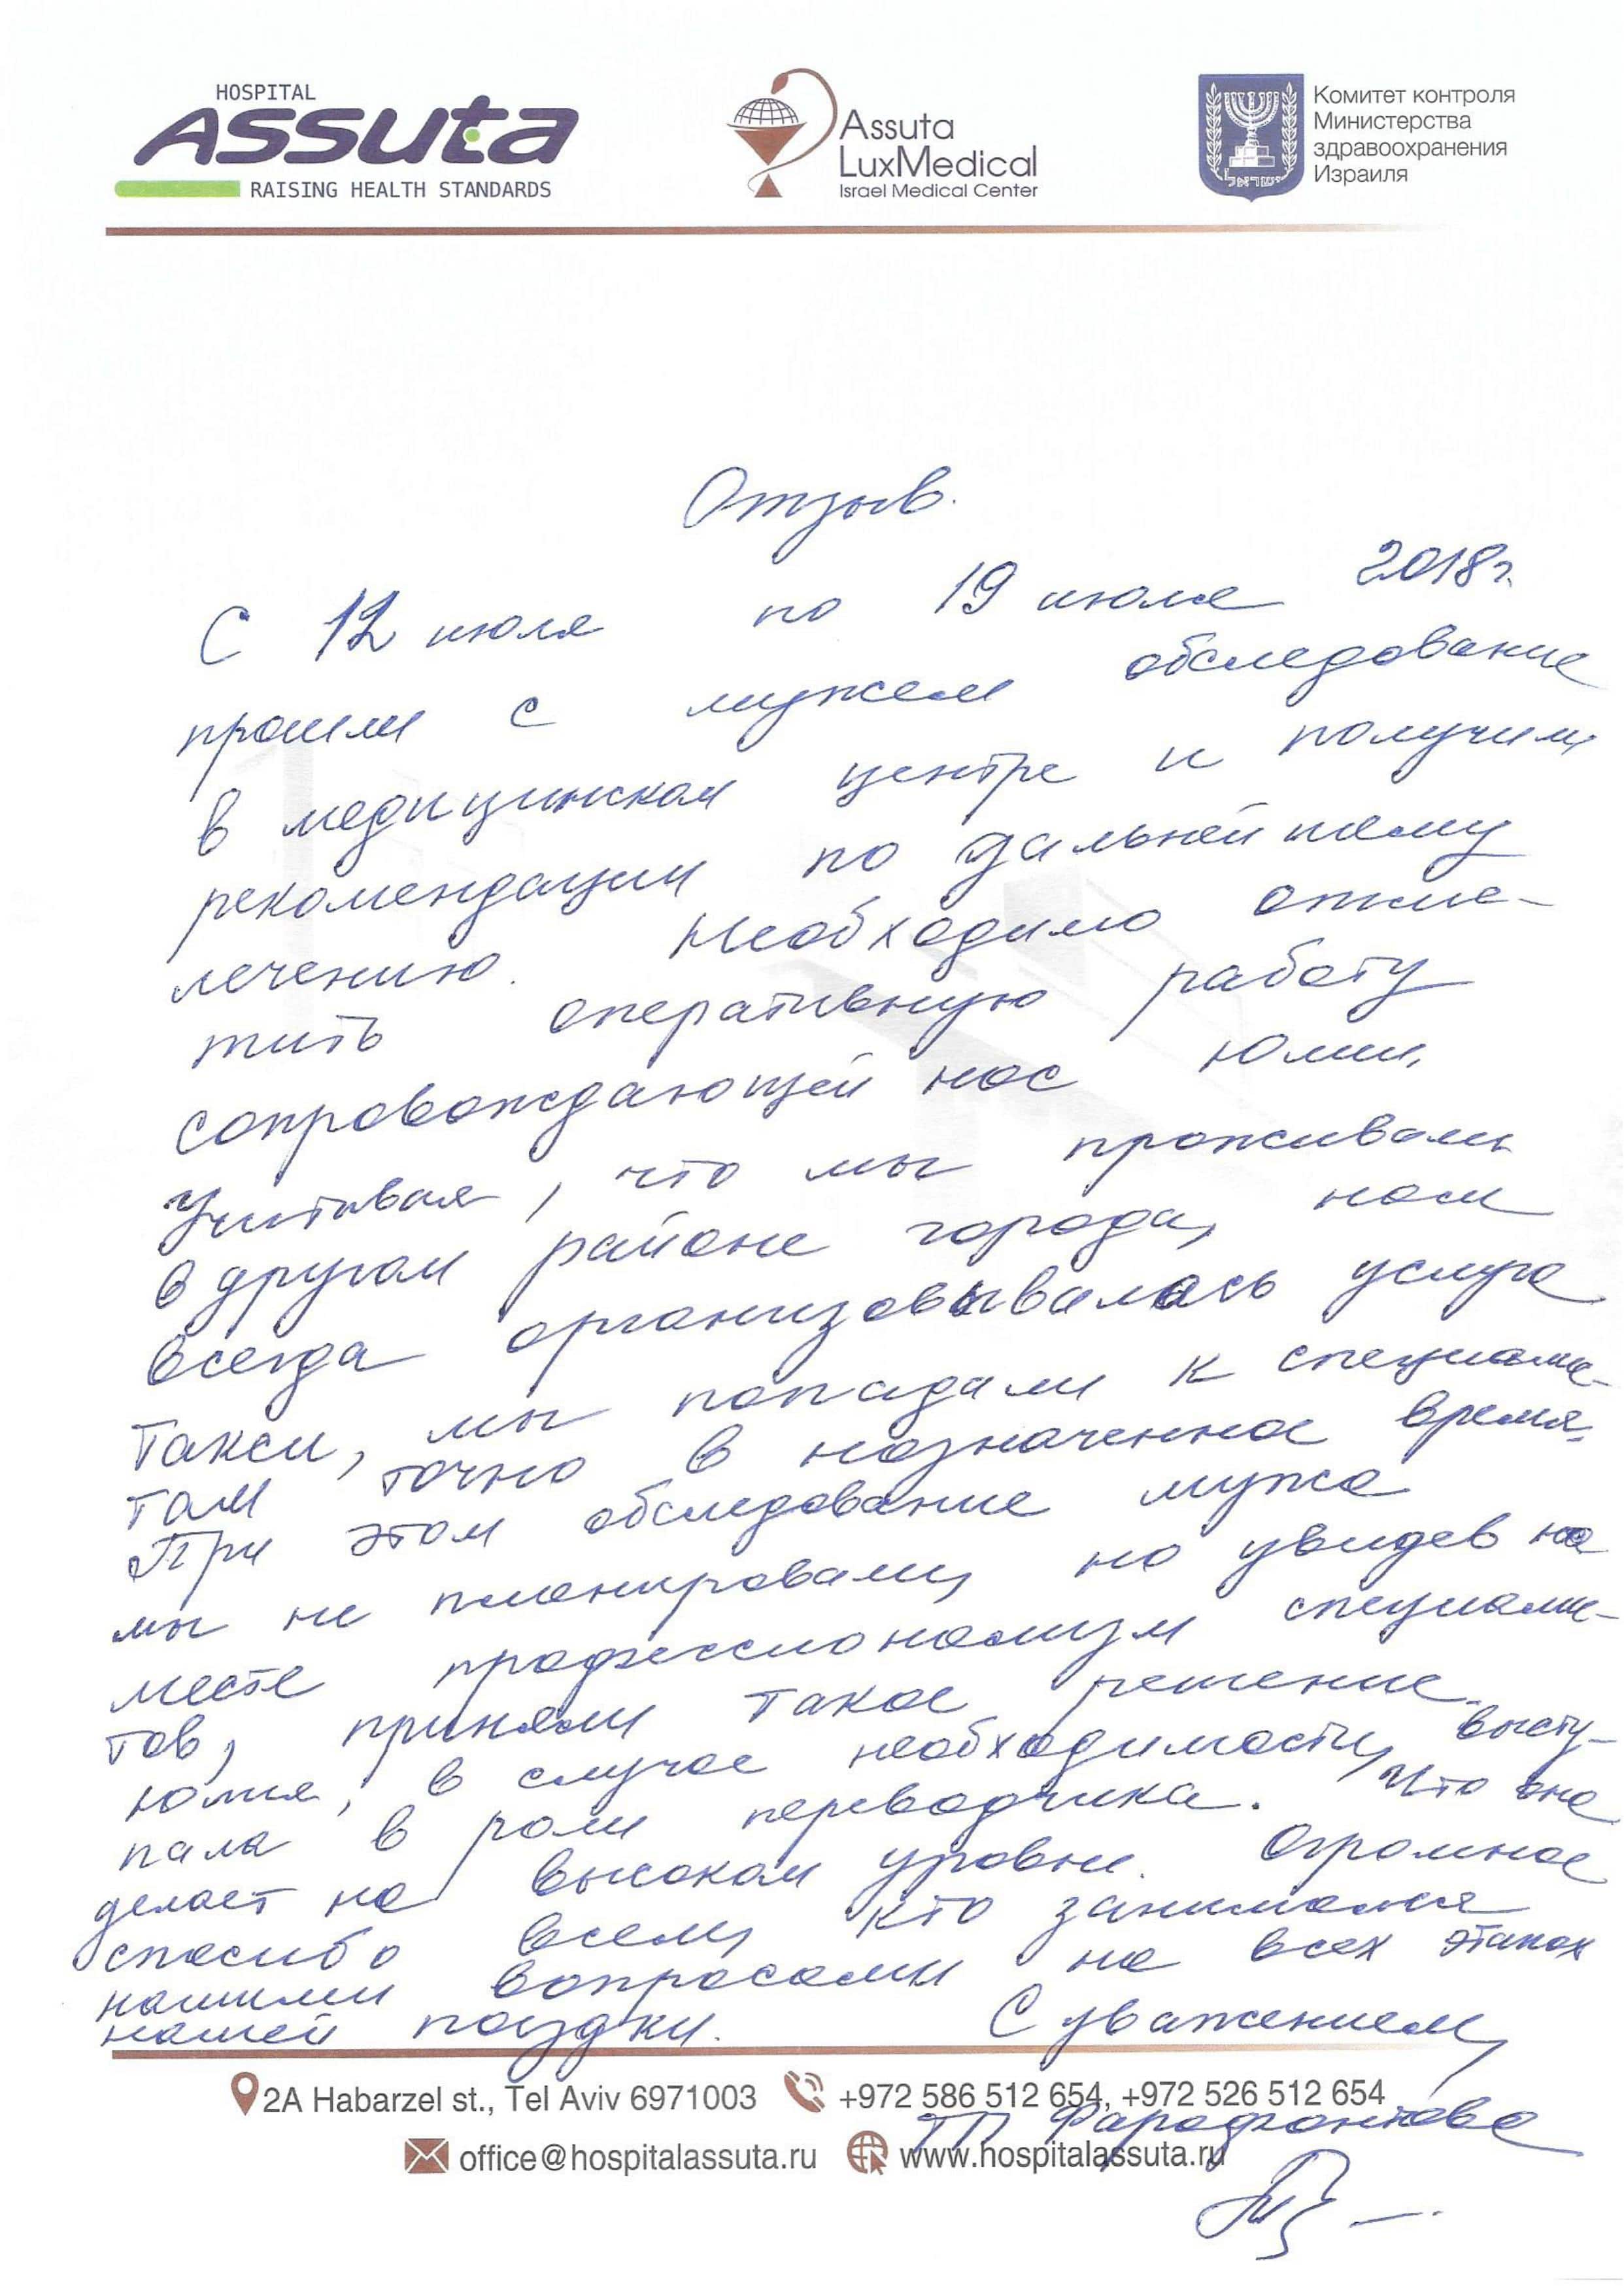 HOSPITAL
Assuta
RAISING HEALTH STANDARDS
Assuta
LuxMedical
Israel Medical Center
ישראל
Комитет контроля
Министерства
здравоохранения
Израиля
Отзыв.
С 12 июля по 19 июля 2018г.
прошли с мужем обследование
в медицинском центре и получили
рекомендации по дальнейшему
лечению. Необходимо отме-
тить оперативную работу
сопровождающей нас Юлии.
Учитывая, что мы проживали
в другом районе города, нам
всегда организовывалась услуга
такси, мы попадали к специалис-
там точно в назначенное время.
При этом обследование мужа
мы не планировали, но увидев на
месте профессионализм специалис-
тов, приняли такое решение.
Юлия, в случае необходимости, высту-
пала в роли переводчика. Что она
делает на высоком уровне. Огромное
спасибо всем, кто занимался
нашими вопросами на всех этапах
нашей поездки. С уважением,
2A Habarzel st., Tel Aviv 6971003 +972 586 512 654, +972 526 512 654
Фарафонтова
office@hospitalassuta.ru www.hospitalassuta.ru